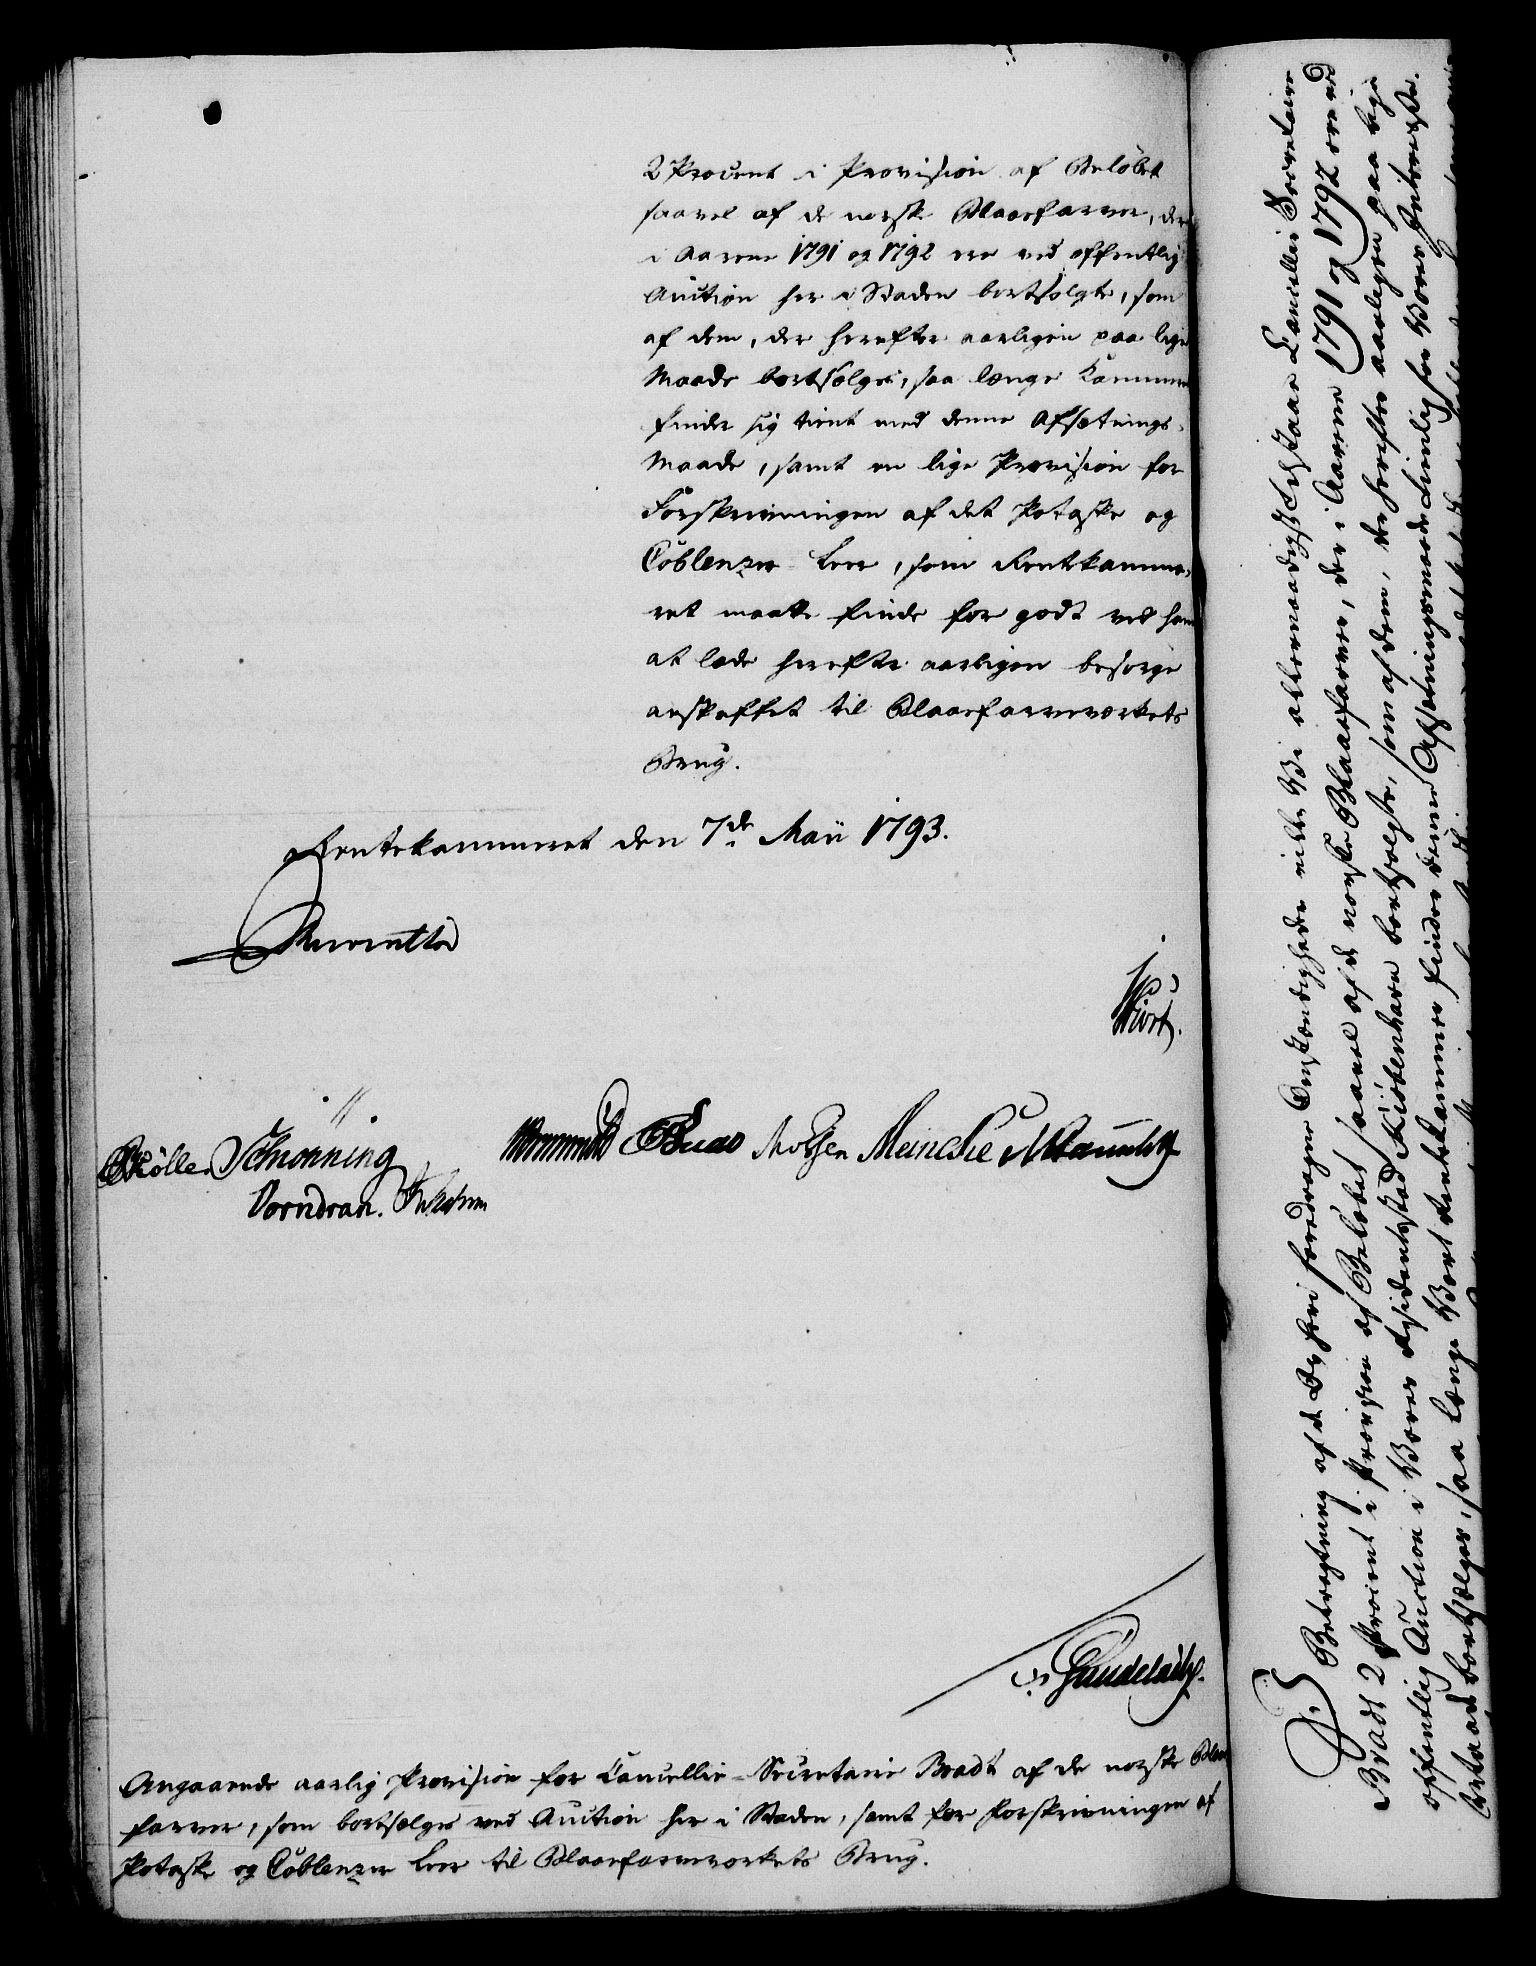 2 Procent i Provision af Beløbet
saavel af de norske Blaaefarver, der
i Aarene 1791 og 1792 ere ved offentlig
Auction her i Staden bortsolgte, som
af dem, der herefter aarligen paa lige
Maade bortsælges, saa længe Kammeret
finder sig tient med denne Afsætnings-
Maade, samt en lige Provision for
Forskrivningen af det Potaske og
Coblenzer Leer, som Rentekamme-
ret maatte finde for godt ved ham
at lade herefter aarligen besørge
anskaffet til Blaaefarveværkets
Brug.
Rentekammeret den 7de Maii 1793.
Reventlow
Hiort.
Møller Schønning
Vorndran.
Meincke
Gündelach.
Angaaende aarlig Provision for Cancellie-Secretaire Bradt af de norske Blaae
farver, som bortsælges ved Auction her i Staden, samt for Forskrivningen af
Potaske og Coblenzer Leer til Blaaefarveværkets Brug.
I Betragtning af de Os heri foredragne Omstændigheder ville Vi allernaadigst tilstaae Cancellie Secretaire
Bradt 2 Procent i Provision af Beløbet saavel af de norske Blaaefarver, der i Aarene 1791 og 1792 ere ved
offentlig Auction i Vores Residentzstad Kiøbenhavn bortsolgte, som af dem, der herefter aarligen paa lige
Maade bortsælges, saa længe Vort Rentekammer finder denne Afsætningsmaade tienlig for Vores Interesse.